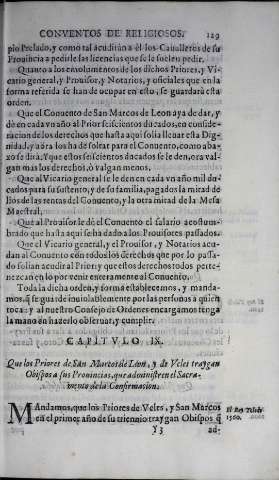 CONVENTOS DE RELIGIOSOS. 129
pio Prelado, y como tal acudiràn a èl los Caualleros de su
Prouincia a pedirle las licencias que se le suelen pedir.
Quanto a los emolumentos de los dichos Priores, y Vi-
cario general, y Prouisor, y Notarios, y oficiales que en la
forma referida se han de ocupar en esto, se guardarà esta
orden.
Que el Conuento de San Marcos de Leon aya de dar, y
dè en cada vn año al Prior seiscientos ducados, en conside-
racion de los derechos que hasta aqui solia lleuar esta Dig-
nidad, y aora los ha de soltar para el Conuento, como aba-
xo se dirà. Y que estos seiscientos ducados se le den, ora val-
gan mas los derechos, ò valgan menos.
Que al Vicario general se le den en cada vn año mil du-
cados para su sustento, y de su familia, pagados la mitad de
llos de las rentas del Conuento, y la otra mitad de la Mesa
Maestral.
Que al Prouisor le dè el Conuento el salario acostum-
brado que hasta aqui se ha dado a los Prouisores passados.
Que el Vicario general, y el Prouisor, y Notarios acu-
dan al Conuento con todos los derechos que por lo passa-
do solian acudir al Prior; y que estos derechos todos perte-
nezcan en lo por venir enteramente al Conuento.
Toda la dicha orden, y forma establecemos, y manda-
mos, q̃ se guarde inuiolablemente por las personas a quien
toca: y al nuestro Consejo de Ordenes encargamos tenga
la mano en hazerlo obseruar, y cumplir.
CAPITVLO IX.
Que los Priores de San Marcos de Leon, y de Veles traygan
Obispos a sus Prouincias, que administren el Sacra-
mento de la Confirmacion.
MAndamos, que los Priores de Veles, y San Marcos
en el primer año de su trienio traygan Obispos, q̃
El Rey
1560.
Y 3 ad-